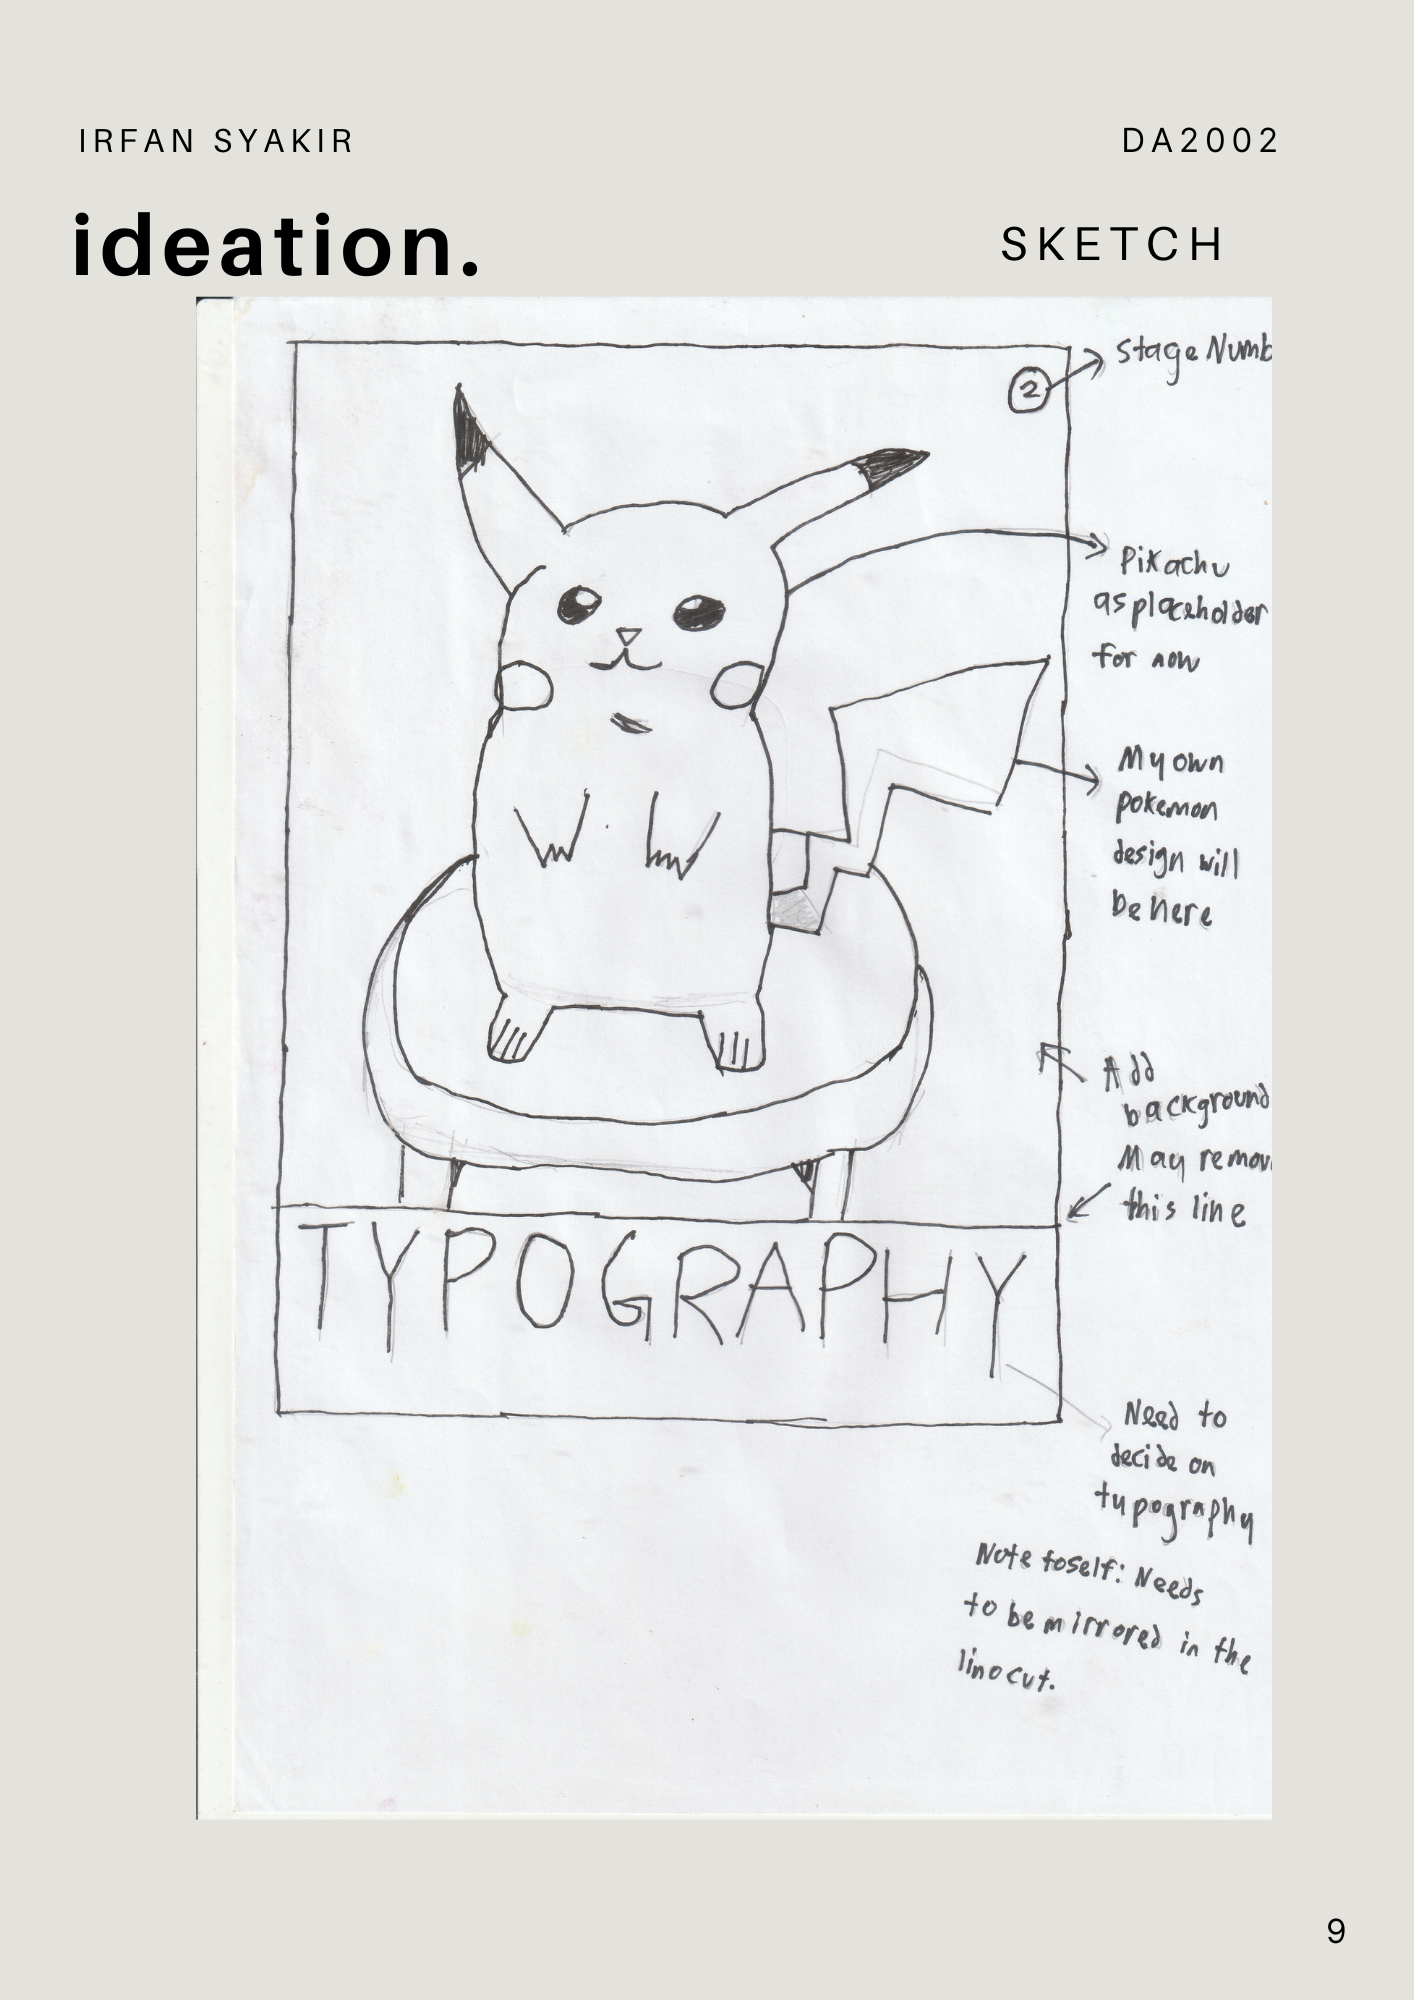 IRFAN SYAKIR
DA2002
ideation.
SKETCH
Stage Numb
2
Pikachu
as placeholder
for now
My own
pokemon
design will
be here
Add
background
May remov
this line
TYPOGRAPHY
Need to
decide on
typography
Note to self: Needs
to be mirrored in the
linocut.
9